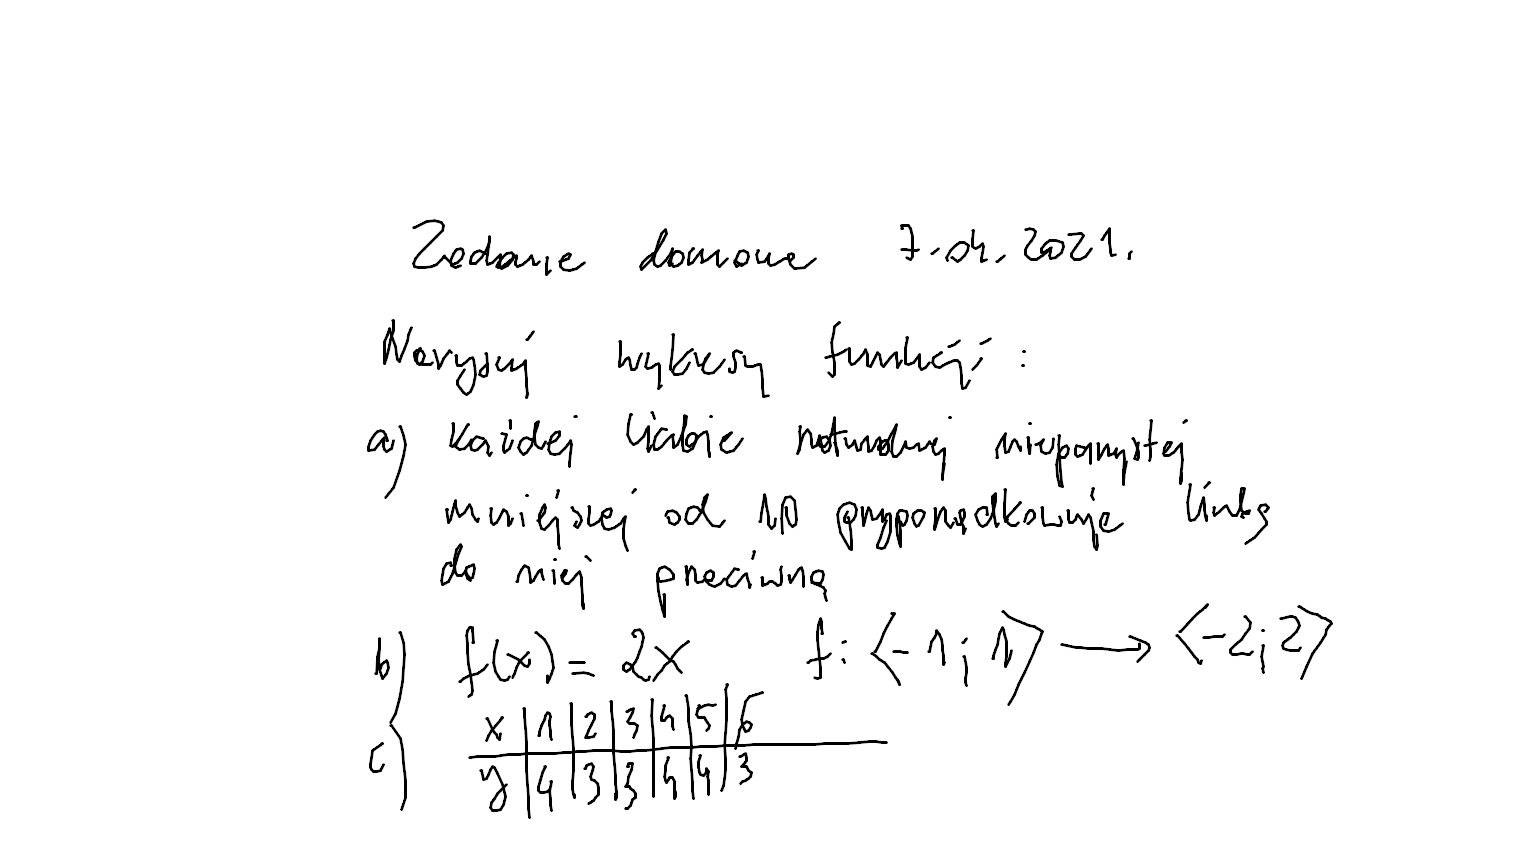 Zadanie domowe 7.04.2021.
Narysuj wykresy funkcji:
a) każdej liczbie naturalnej nieparzystej
mniejszej od 10 przyporządkowuje liczbę
do niej przeciwną
b) f(x) = 2x f: <-1; 1> → <-2; 2>
c) x | 1 | 2 | 3 | 4 | 5 | 6
y | 4 | 3 | 3 | 4 | 4 | 3